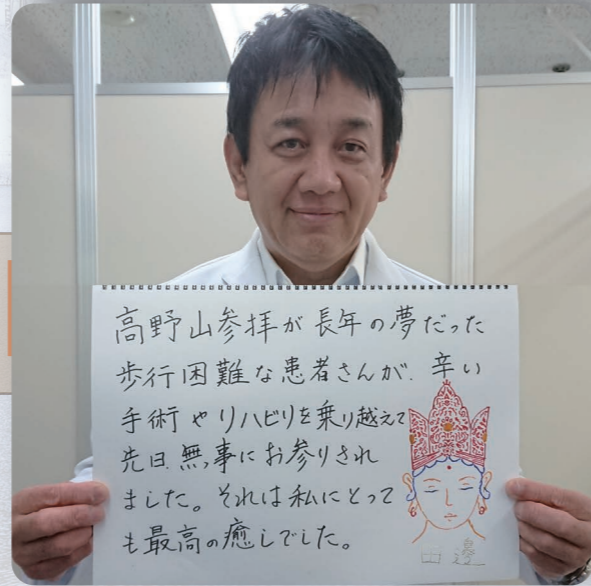 高野山参拝が長年の夢だった
歩行困難な患者さんが、辛い
手術やリハビリを乗り越えて
先日、無事にお参りされ
ました。それは私にとって
も最高の癒しでした。
田邉